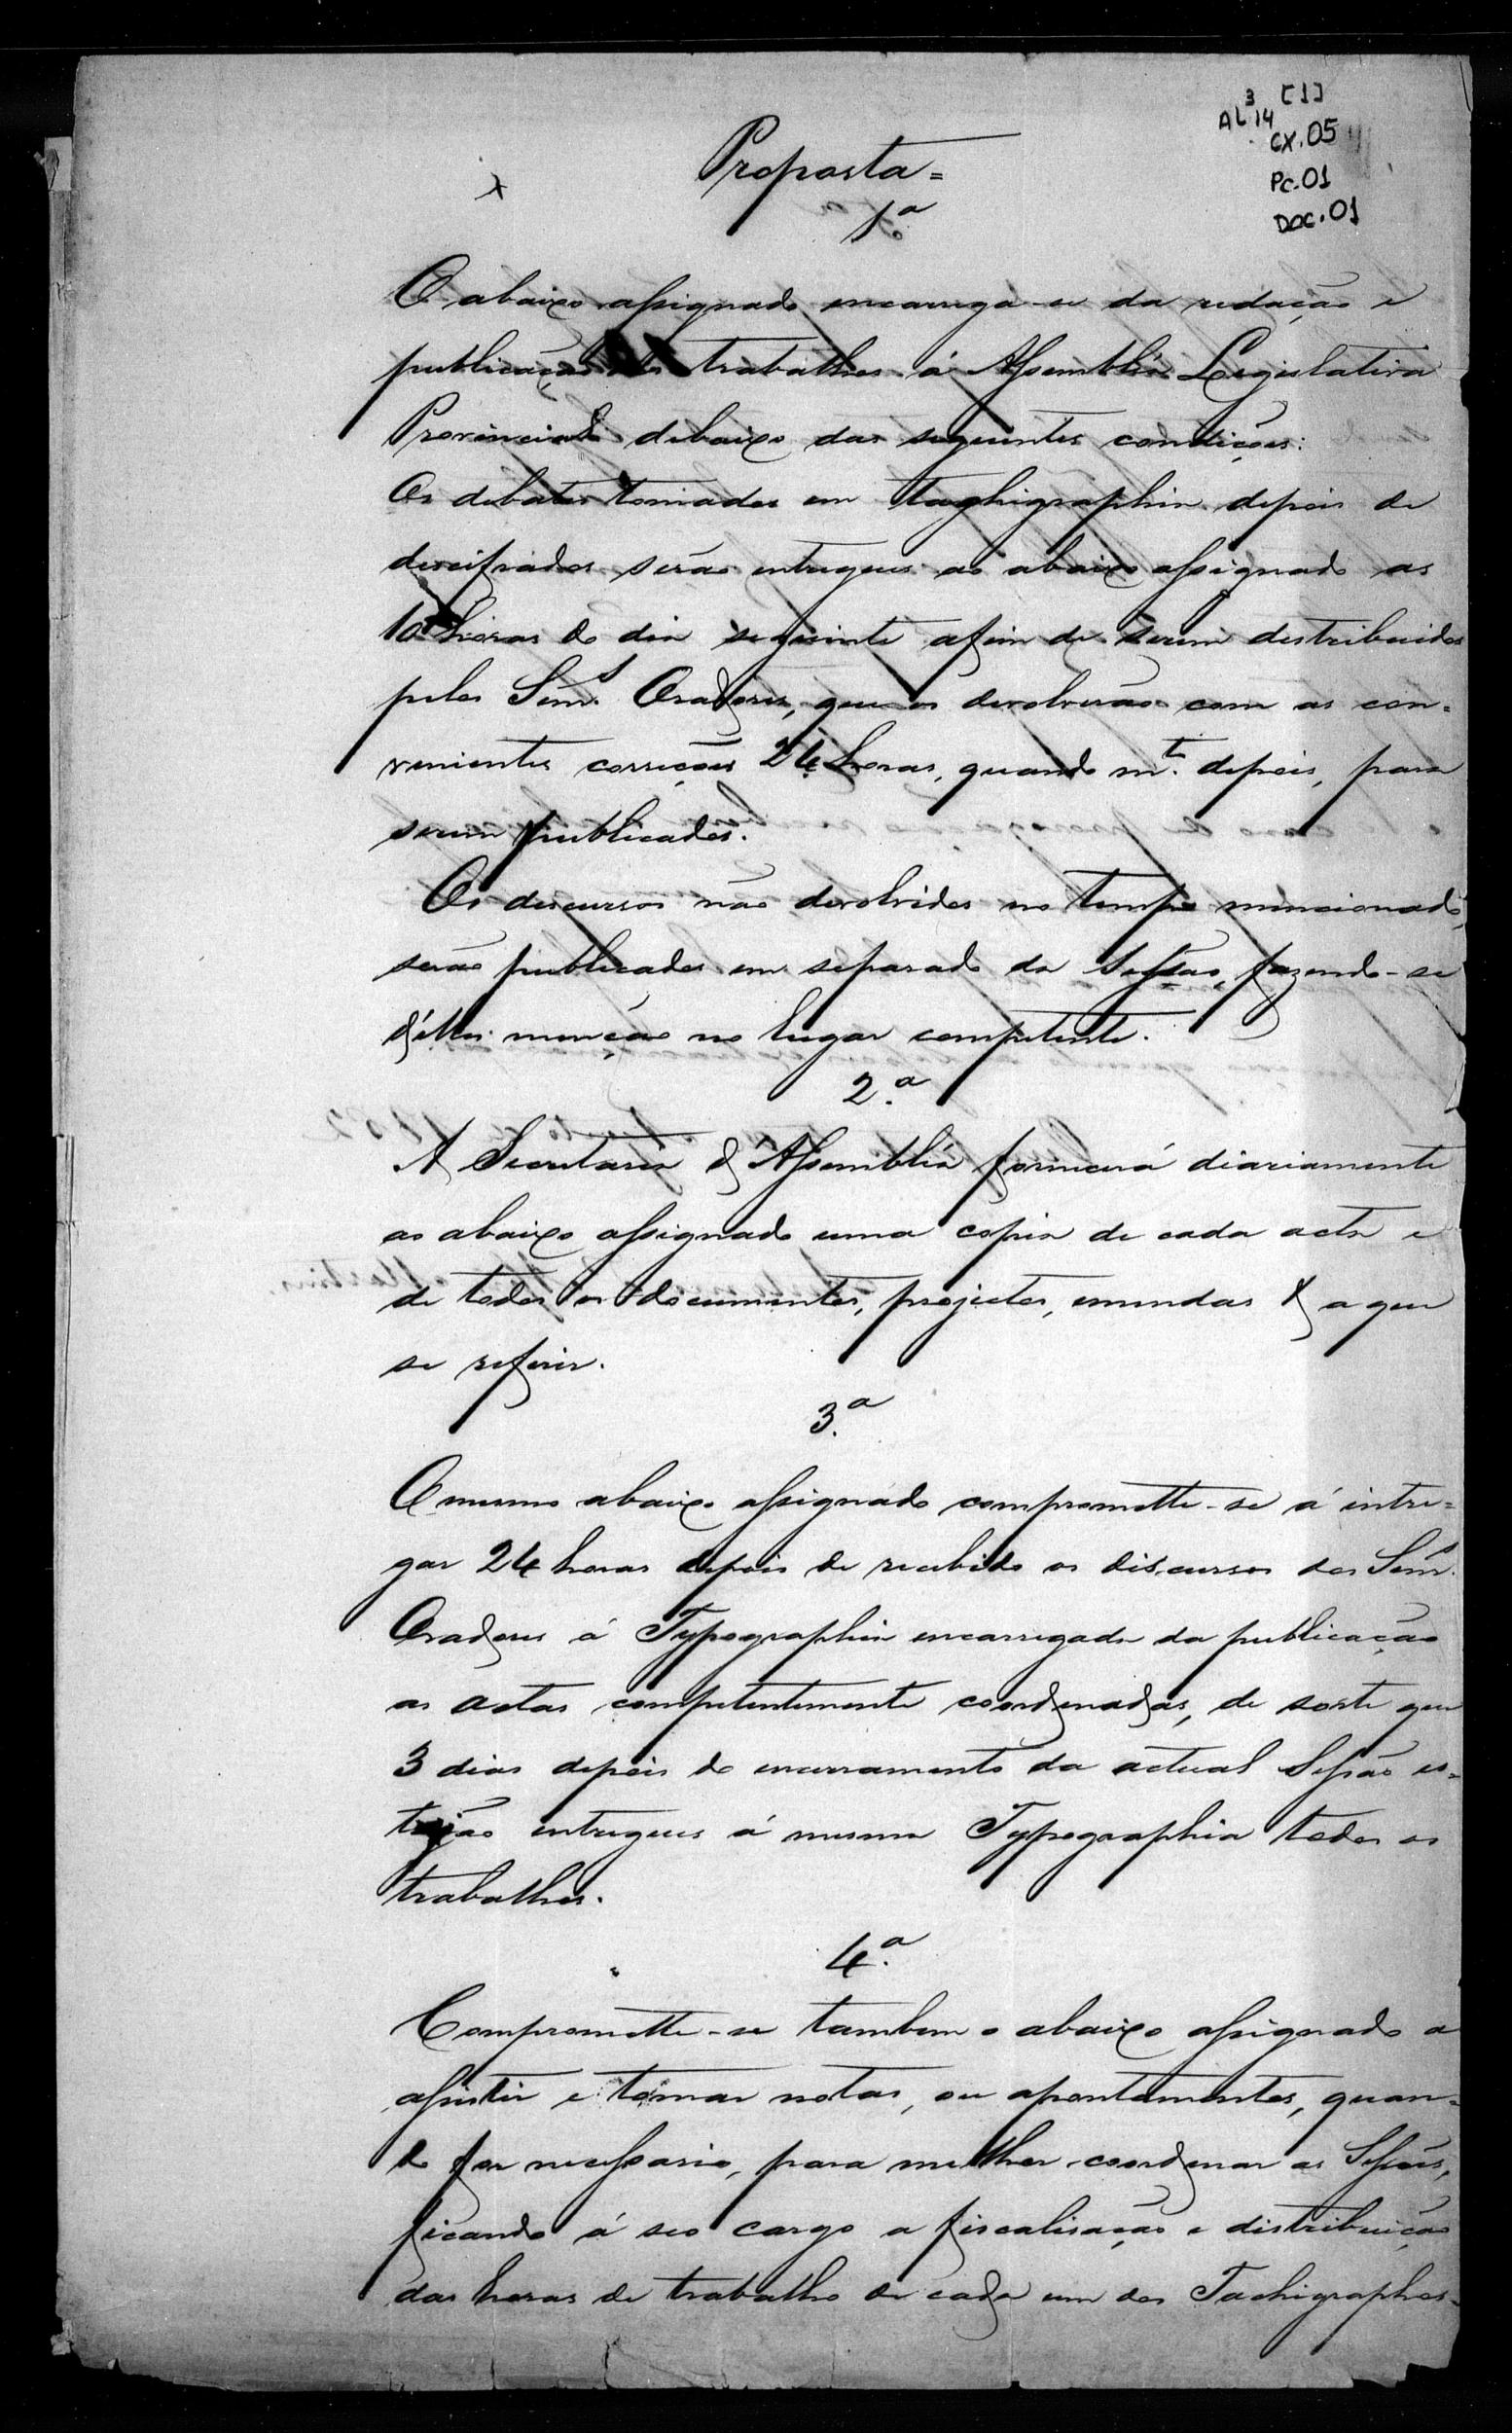 3 [1]
AL 14
CX.05
PC.01
DOC.01
Proposta=
1.ª
O abaixo assignado encarrega-se da redação e
publicação dos trabalhos á Assembléa Legislativa
Provincial debaixo das seguintes condições:
Os debates tomados em tachigraphia depois de
decifrados serão entregues ao abaixo assignado as
10 horas do dia seguinte afim de serem destribuidos
pelos Senr.s Oradores, que os devolverão com as con=
venientes correções 24 horas, quando m.to depois, para
serem publicados.
Os discursos não devolvidos no tempo mencionado,
serão publicados em separado da Sessão, fazendo-se
d'elles menção no lugar competente.
2.ª
A Secretaria d'Assembléa fornecerá diariamente
ao abaixo assignado uma copia de cada acta e
de todos os documentos, projectos, emendas & a que
se referir.
3.ª
O mesmo abaixo assignado compromette-se á entre=
gar 24 horas depois de recebido os discursos dos Senr.s
Oradores á Typographia encarregada da publicação
as actas competentemente coordenadas, de sorte que
3 dias depois do encerramento da actual Sessão es=
tejão entregues á mesma Typographia todos os
trabalhos.
4.ª
Compromette-se tambem o abaixo assignado a
assistir e tomar notas, ou apontamentos, quan=
do for necessario, para melhor coordenar as Sessões,
ficando á seo cargo a fiscalisação e distribuição
das horas de trabalho de cada um dos Tachigraphos.